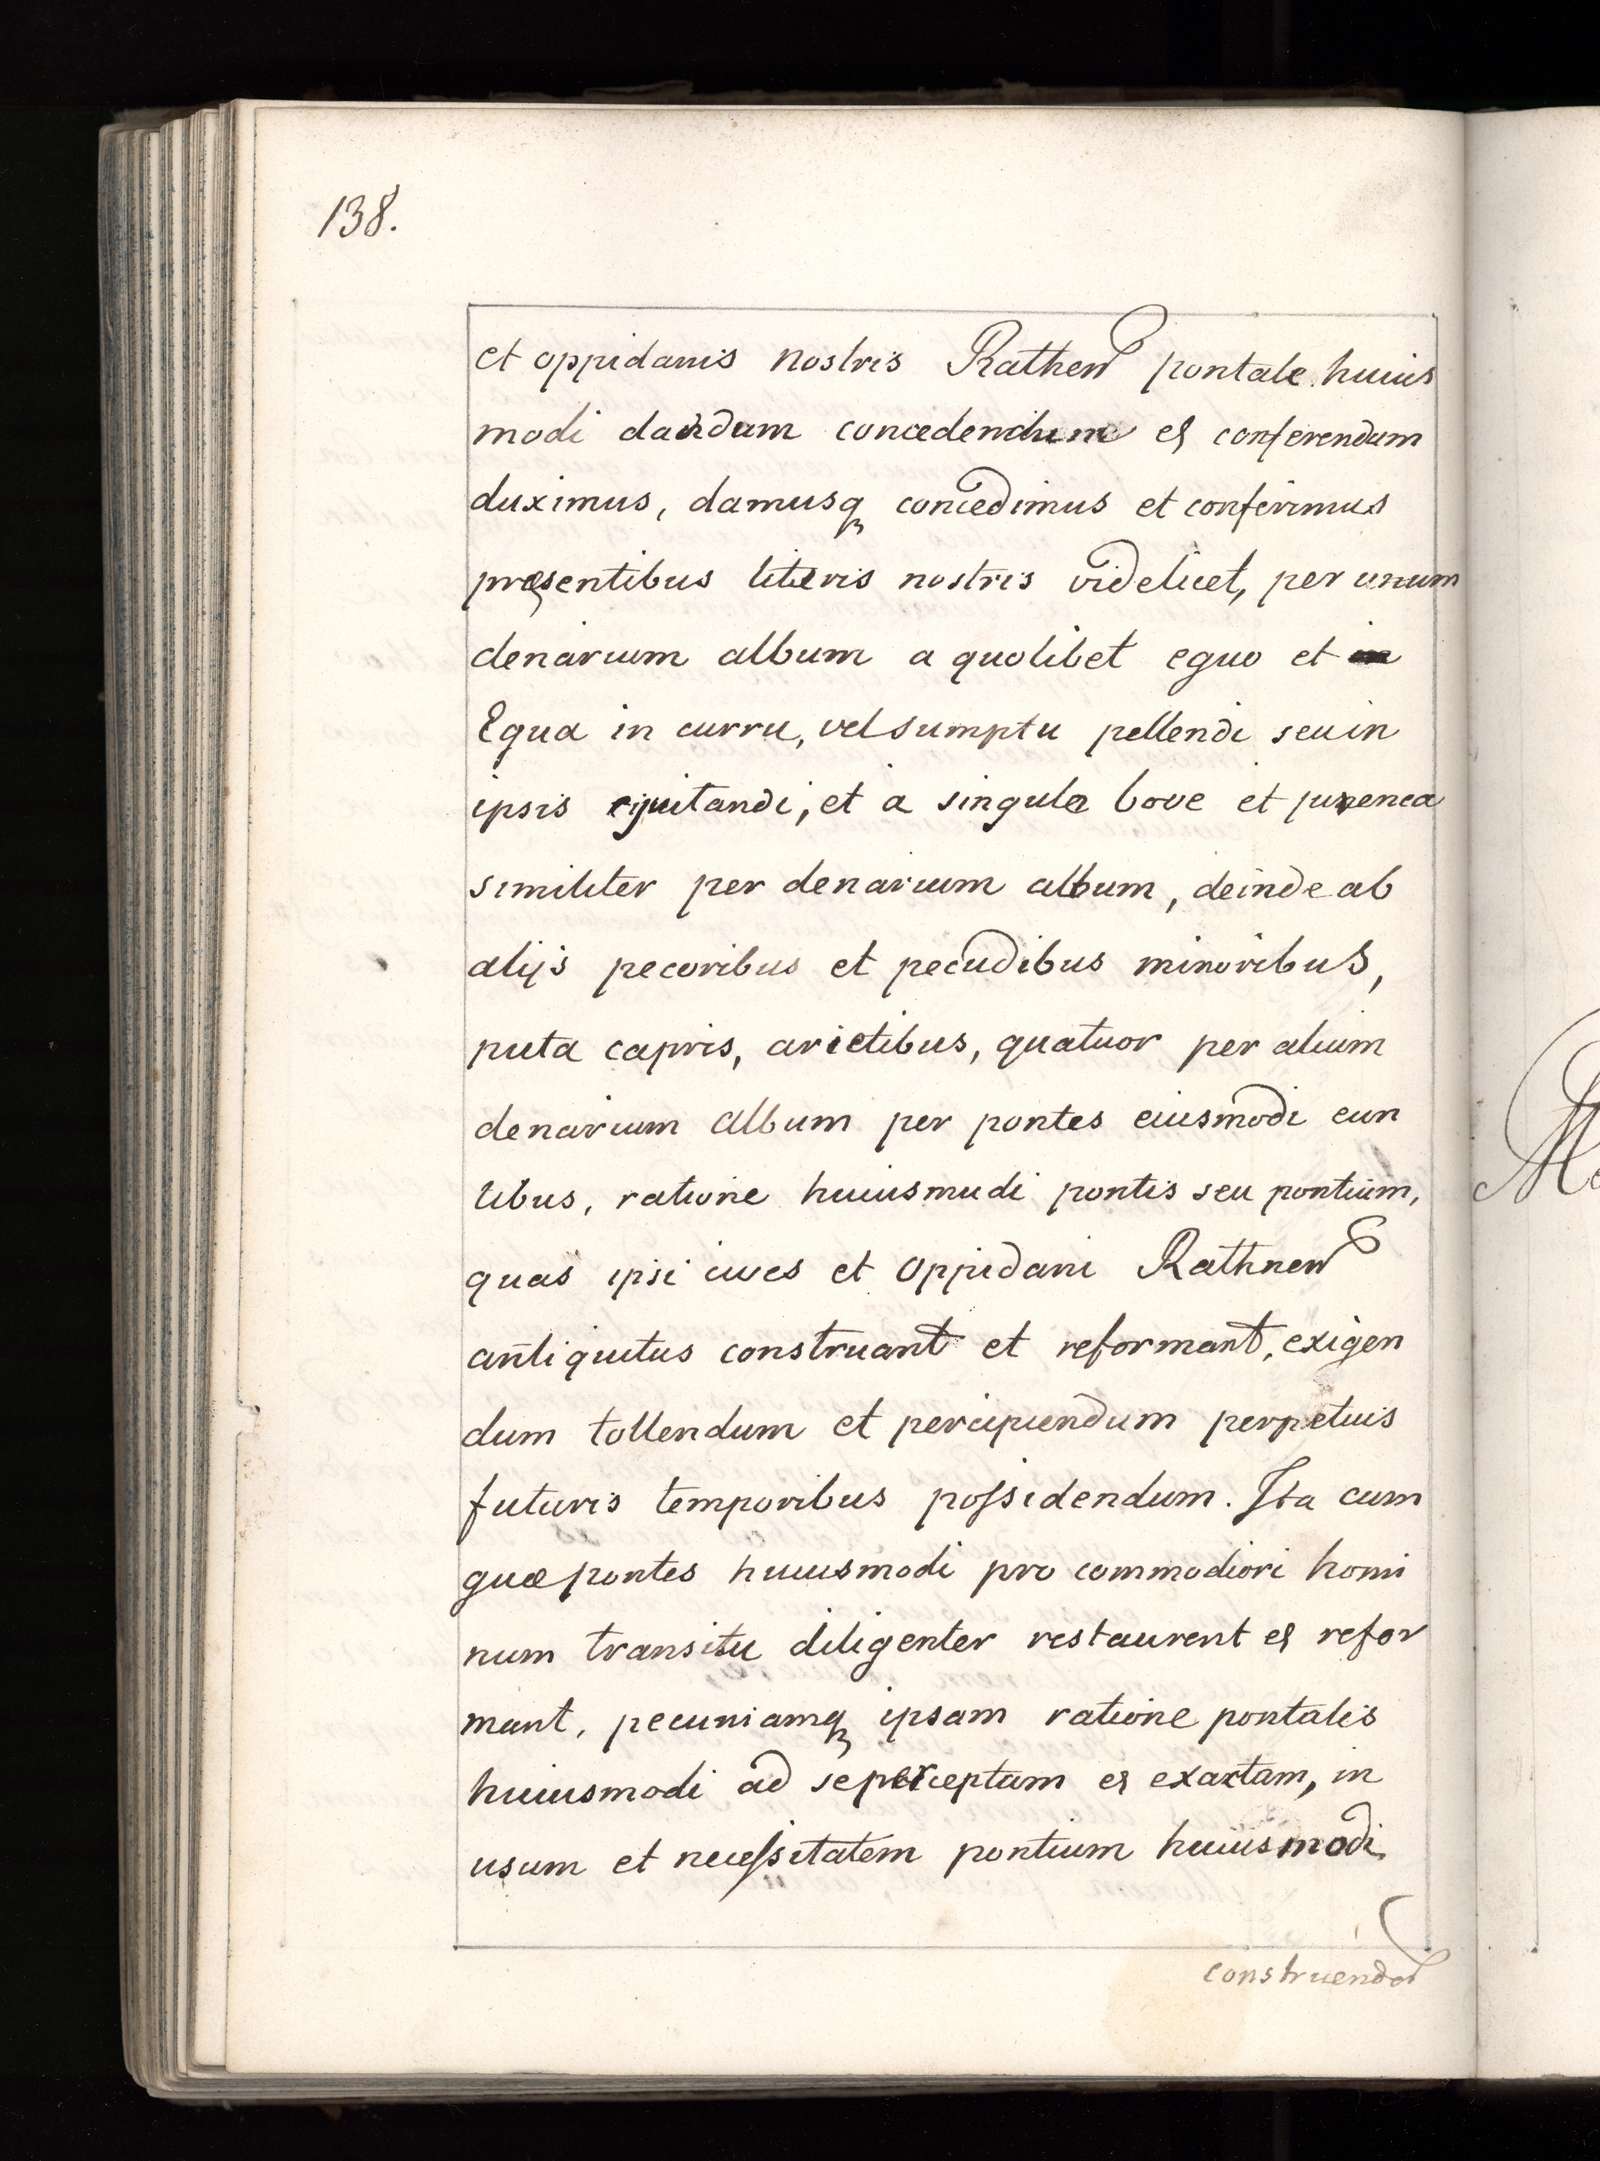 138.
et oppidanis nostris Rathen pontale huius
modi dandam concedendum et conferendum
duximus, damusq concedimus et conferimus
præsentibus literis nostris videlicet, per unum
denarium album a quolibet equo et
Equa in curru, vel sumptu pellendi seu in
ipsis equitandi, et a singula bove et juvenca
similiter per denarium album, deinde ab
alijs pecoribus et pecudibus minoribus,
puta capris, arietibus, quatuor per alium
denarium album per pontes eiusmodi eun
tibus, ratione huiusmudi pontis seu pontium,
quas ipsi cives et oppidani Rathnen
antiquitus construant et reformant, exigen
dum tollendum et percipiendum perpetuis
futuris temporibus possidendum. Ita cum
quæ pontes huiusmodi pro commodiori homi
num transitu diligenter restaurent et refor
mant, pecuniamq ipsam ratione pontalis
huiusmodi ad se perceptam et exactam, in
usum et necessitatem pontium huiusmodi
construendos